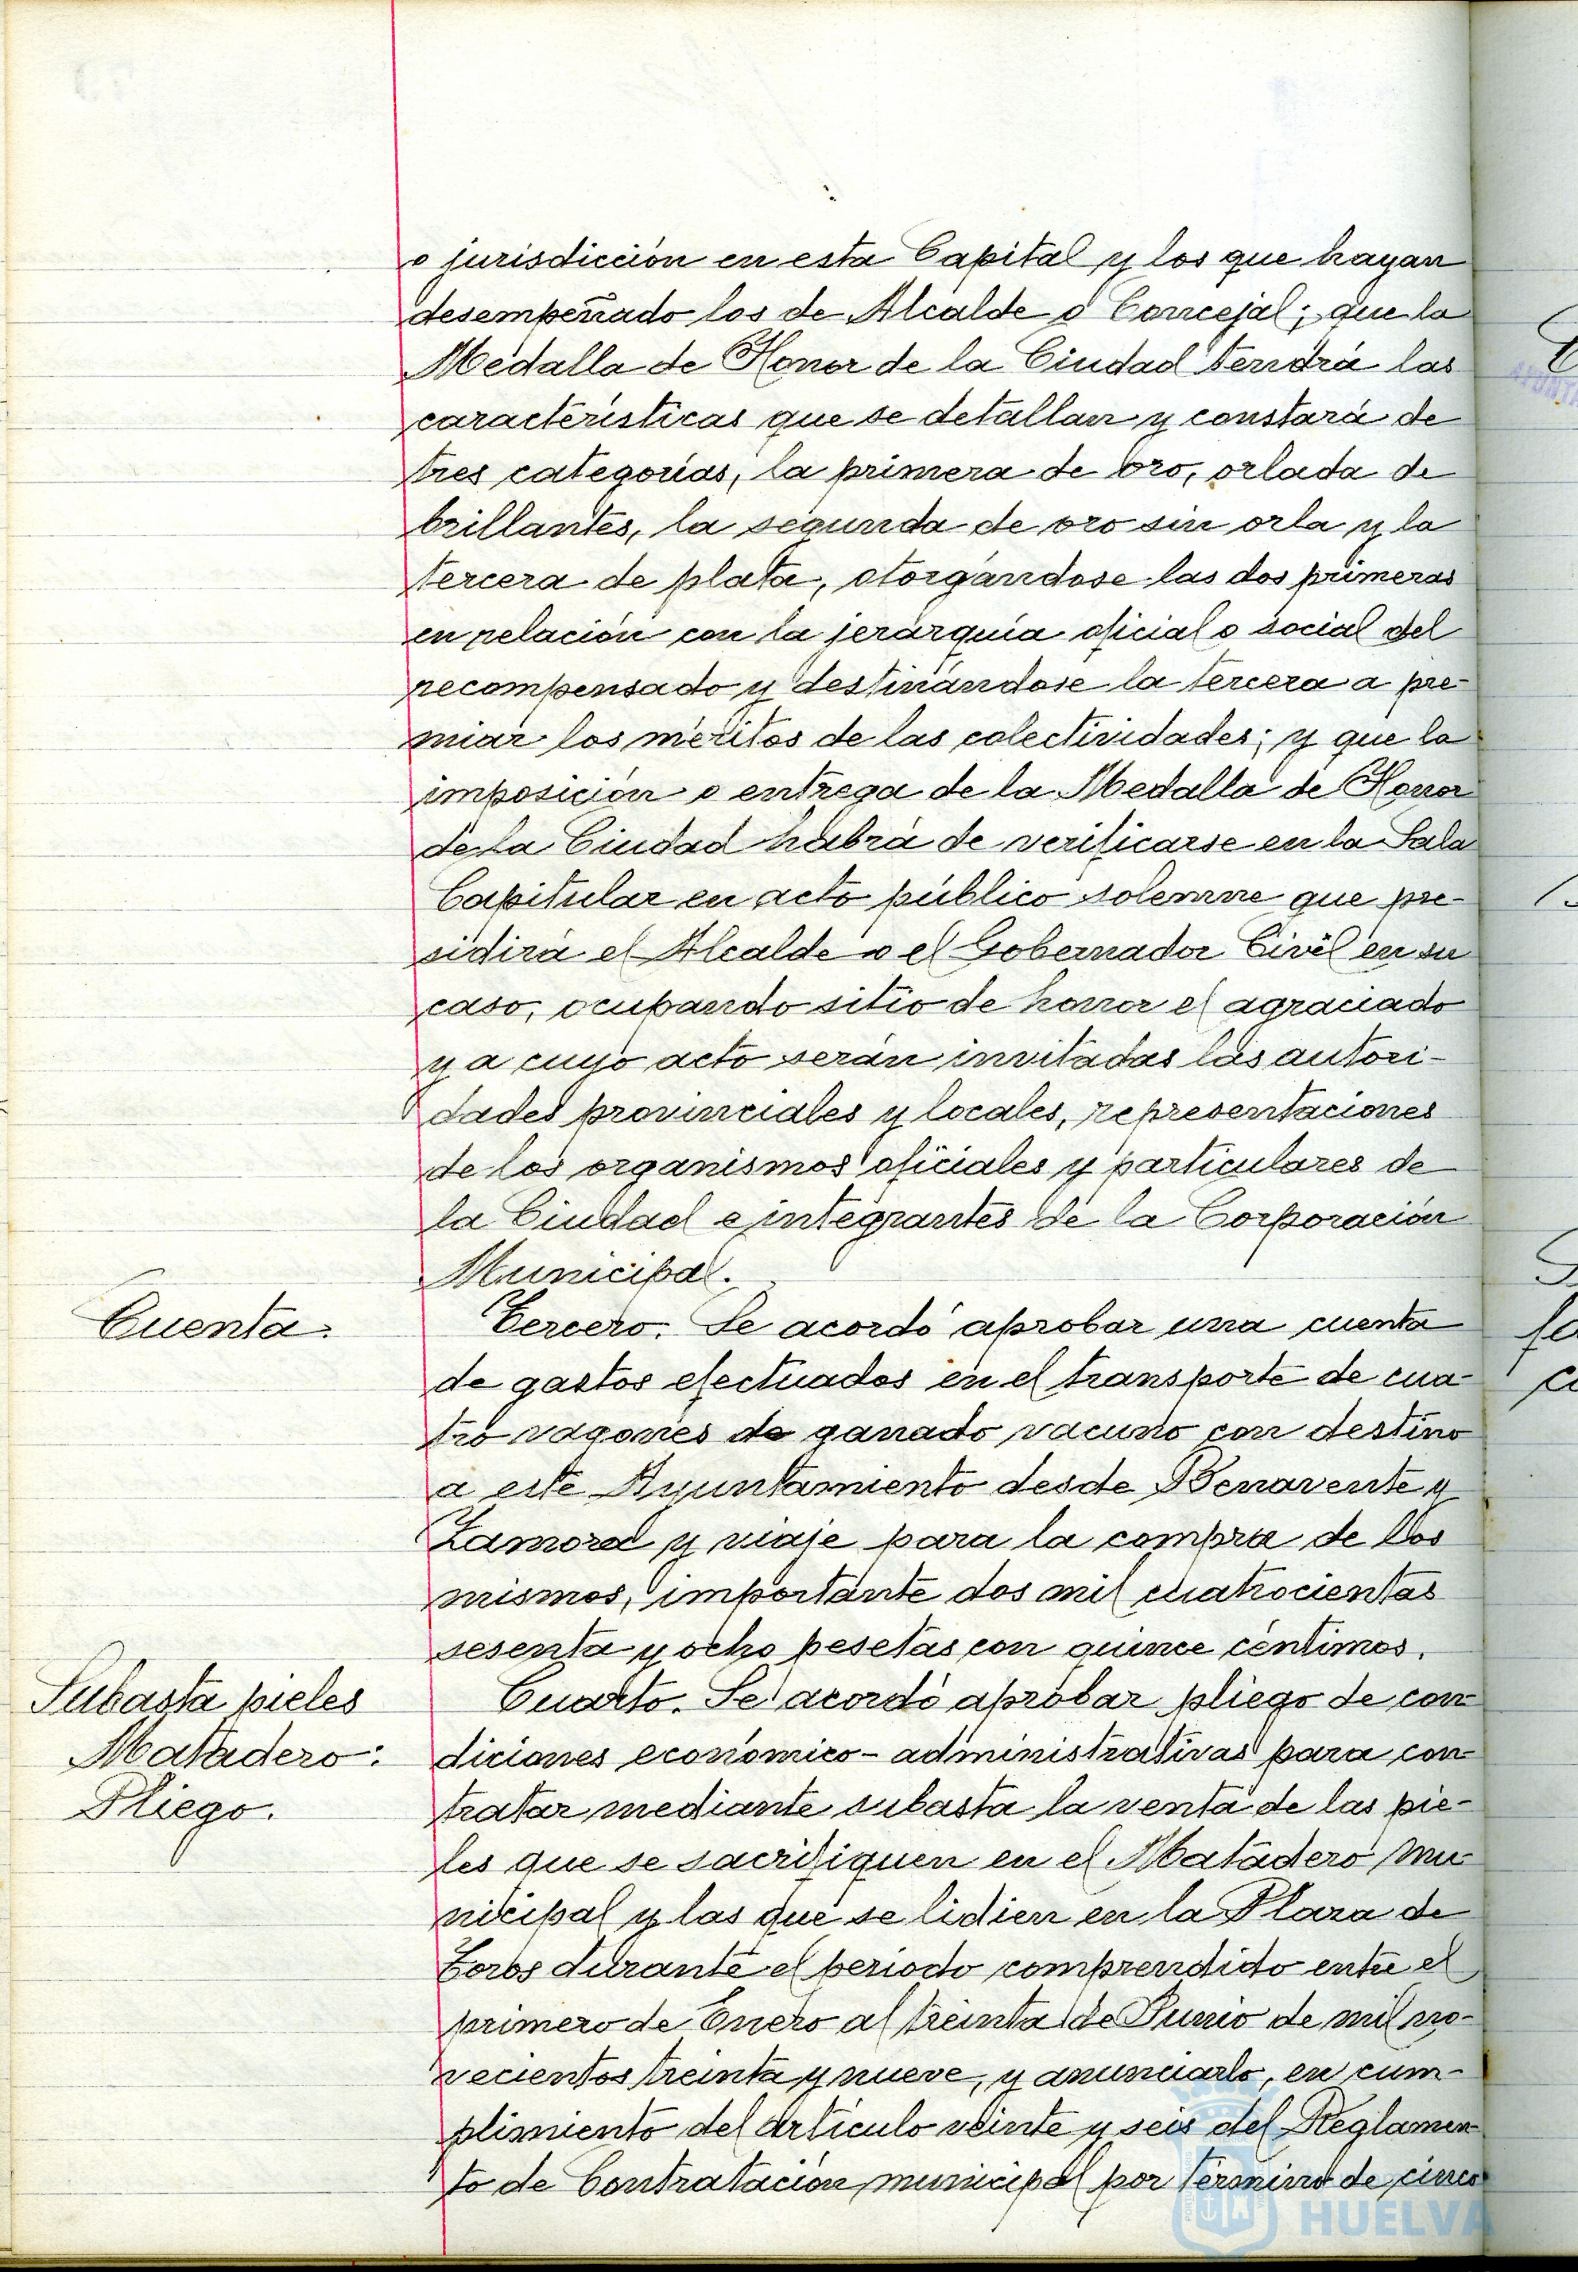 o jurisdicción en esta Capital y los que hayan
desempeñado los de Alcalde o Concejal; que la
Medalla de Honor de la Ciudad tendrá las
características que se detallan y constará de
tres categorías, la primera de oro, orlada de
brillantes, la segunda de oro sin orla y la
tercera de plata, otorgándose las dos primeras
en relación con la jerarquía oficial o social del
recompensado y destinándose la tercera a pre-
miar los méritos de las colectividades; y que la
imposición o entrega de la Medalla de Honor
de la Ciudad habrá de verificarse en la Sala
Capitular en acto público solemne que pre-
sidirá el Alcalde o el Gobernador Civil en su
caso, ocupando sitio de honor el agraciado
y a cuyo acto serán invitadas las autori-
dades provinciales y locales, representaciones
de los organismos oficiales y particulares de
la Ciudad e integrantes de la Corporación
Municipal.
Cuenta.
Tercero. Se acordó aprobar una cuenta
de gastos efectuados en el transporte de cua-
tro vagones de ganado vacuno con destino
a este Ayuntamiento desde Benavente y
Zamora y viaje para la compra de los
mismos, importante dos mil cuatrocientas
sesenta y ocho pesetas con quince céntimos.
Subasta pieles
Matadero:
Pliego.
Cuarto. Se acordó aprobar pliego de con-
diciones económico-administrativas para con-
tratar mediante subasta la venta de las pie-
les que se sacrifiquen en el Matadero Mu-
nicipal y las que se lidien en la Plaza de
Toros durante el periodo comprendido entre el
primero de Enero al treinta de Junio de mil no-
vecientos treinta y nueve, y anunciarlo, en cum-
plimiento del artículo veinte y seis del Reglamen-
to de Contratación municipal por término de cinco
HUELVA